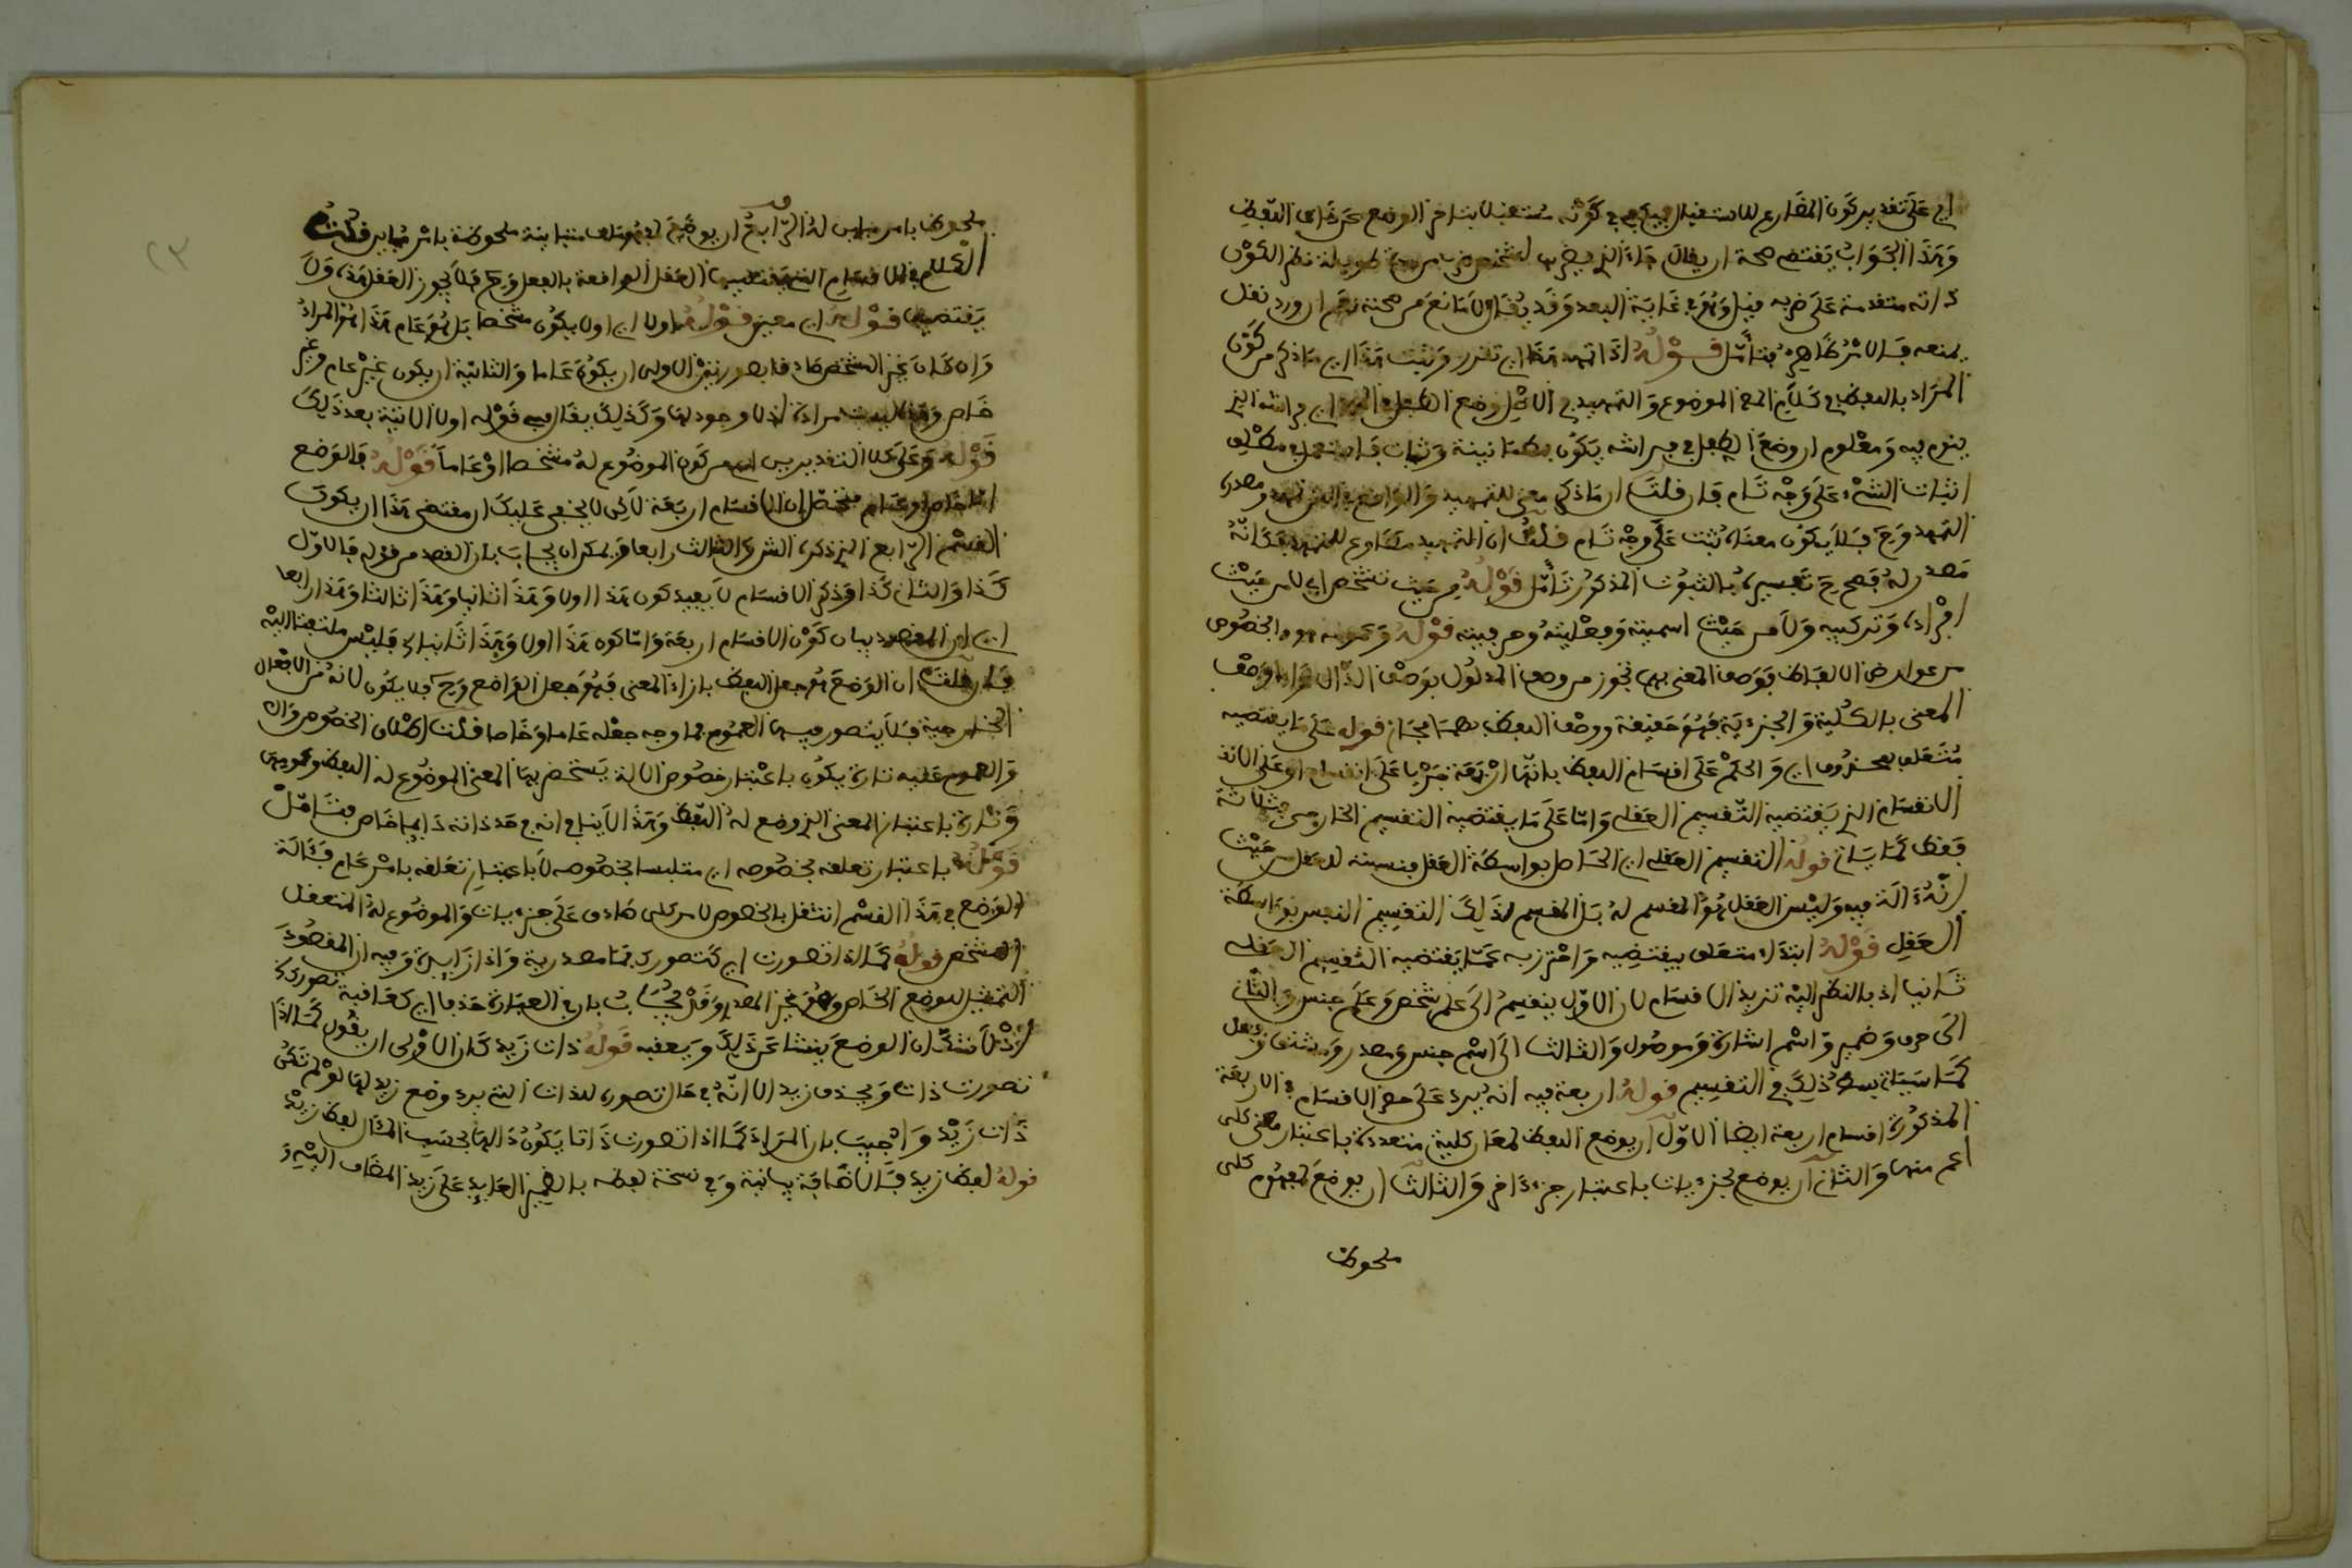 اي على تقدير كون المضارع للاستقبال فيكفي في كونه مستقبلا بتاخر الوضع عن اللفظ
وهذا الجواب يقتضي صحة ان يقال جاء الذي يضرب لشخص ضرب
انه متقدمة على ضربه قبل وهو في غاية البعد وقد يقال لا مانع من صحته نعم ان ورد نقل
بمنعه فالامر ظاهر فتأمل قوله اذا تمهد هذا اي تقرر وثبت هذا اي ما ذكر من كون
المراد باللفظ في كلام المص الموضوع والتمهيد في الاصل وضع الطفل في المهد اي فراشه الذي
ينوم فيه ومعلوم ان وضع الطفل في فراشه يكون بطمانينة وثبات فاستعمل في مطلق
اثبات الشيء على وجه تام فان قلت ان ما ذكر معنى للتمهيد والواقع في المتن تمهد ومصدره
التمهد وح فلا يكون معناه ثبت على وجه تام قلت ان التمهيد مطاوع للتمهد فكانه
مصدر له فصح ح تفسيره بالثبوت المذكور تأمل قوله من حيث تشخص اي لا من حيث
افراده وتركيبه ولا من حيث اسميته وفعليته وحرفيته قوله وعمومه هو والخصوص
من عوارض الالفاظ فوصف المعنى بهما تجوز من وصف المدلول بوصف الدال واما وصف
المعنى بالكلية والجزءية فهو حقيقة ووصف اللفظ بهما مجاز قوله على ما يقتضيه
متعلق بمحذوف اي والحكم على اقسام اللفظ بانها اربعة جريا على انقسام او على
الانقسام الذي يقتضيه التقسيم العقلي واما على ما يقتضيه التقسيم الخارجي فثلاثة
فقط كما ياتي قوله التقسيم العقلي اي الحاصل بواسطة العقل فنسبته للعقل من حيث
انه ءالة فيه وليس العقل هو المقسم له بل المقسم لذلك التقسيم النفس بواسطة
العقل قوله ابتداء متعلق بيقتضيه واحترز به عما يقتضيه التقسيم العقلي
ثانيا اذ بالنظر اليه تزيد الاقسام لان الاول ينقسم الى علم شخص وعلم جنس والثاني
الى حرف وضمير واسم اشارة وموصول والثالث الى اسم جنس ومصدر ومشتق وفعل
كما سياتي بسط ذلك في التقسيم قوله اربعة فيه انه يرد على حصر الاقسام في الاربعة
المذكورة اقسام اربعة ايضا الاول ان يوضع اللفظ لمعان كلية متعددة باعتبار معنى كلي
اعم منها والثاني ان يوضع لجزءيات باعتبار جزء ءاخر والثالث ان يوضع لمفهوم كلي
ملحوظ
ملحوظ بامر مباين له الرابع ان يوضع لمفهومات متباينة ملحوظة بامر مباين قلت
الكلام في الاقسام التي يقتضيها العقل الواقعة بالفعل وح فلا يجوز العقل هذه ولا
يقتضيها قوله اي معين قوله اولا اي اولا يكون مشخصا بل هو عام هذا هو المراد
وان كان غير المشخص صادقا بصورتين الاولى ان يكون عاما والثانية ان يكون غير عام وغير
خاص وهذا ليست مرادة اذ لا وجود لها وكذلك يقال في قوله اولا الاتية بعد ذلك
قوله وعلى كلا التقديرين اي من كون الموضوع له مشخصا او عاما قوله فالوضع
اما خاص او عام فتحصل ان الاقسام اربعة لاكن لا يخفى عليك ان مقتضى هذا ان يكون
القسم الرابع الذي ذكره الشرح الثالث رابعا ويمكن ان يجاب بان القصد من قوله فالاول
كذا والثاني كذا وذكر الاقسام لا بقيد كون هذا اولا وهذا ثانيا وهذا ثالثا وهذا رابعا
اي ان المقصد بيان كون الاقسام اربعة واما كون هذا اولا وهذا ثانيا الخ فليس ملتفتا اليه
فان قلت ان الوضع هو جعل اللفظ بازاء المعنى فهو جعل الواضع وح فلا يكون لانه من الافعال
الخارجية فلا يتصور فيها العموم فما وجه جعله عاما وخاصا قلت اطلاق الخصوص
والعموم عليه تارة يكون باعتبار خصوص الالة يستحضر بها المعنى الموضوع له اللفظ وعمومها
وتارة باعتبار المعنى الذي وضع له اللفظ وهذا لا ينافي انه في حد ذاته دايما خاص فتأمل
قوله باعتبار تعلقه بخصوصه اي متلبسا بخصوصه لا باعتبار تعلقه بامر عام فئالة
الوضع في هذا القسم انتقل بالخصوص لامر كلي صادق على جزءيات والموضوع له المتعقل
المشخص قوله كما اذا تصورت اي كتصورك فما مصدرية واذا زايدة وفيه ان المقصود
التمثيل للوضع الخاص وهو غير المصدر وقد يجاب بان في العبارة حذفا اي كعاقبة تصورك
اذ لا شك ان الوضع ينشا عن ذلك ويعقبه قوله ذات زيد كان الاولى ان يقول كما اذا
تصورت ذات ويحذف زيد الا انه في حال تصوره للذات التي يريد وضع زيد لها لو لم تكن
ذات زيد واجيب بان المراد كما اذا تصورت ذاتا يكون دالها بحسب المئال لفظ زيد
قوله لفظ زيد فالاضافة بيانية وفي نسخة لفظه بالضمير العايد على زيد المضاف اليه و